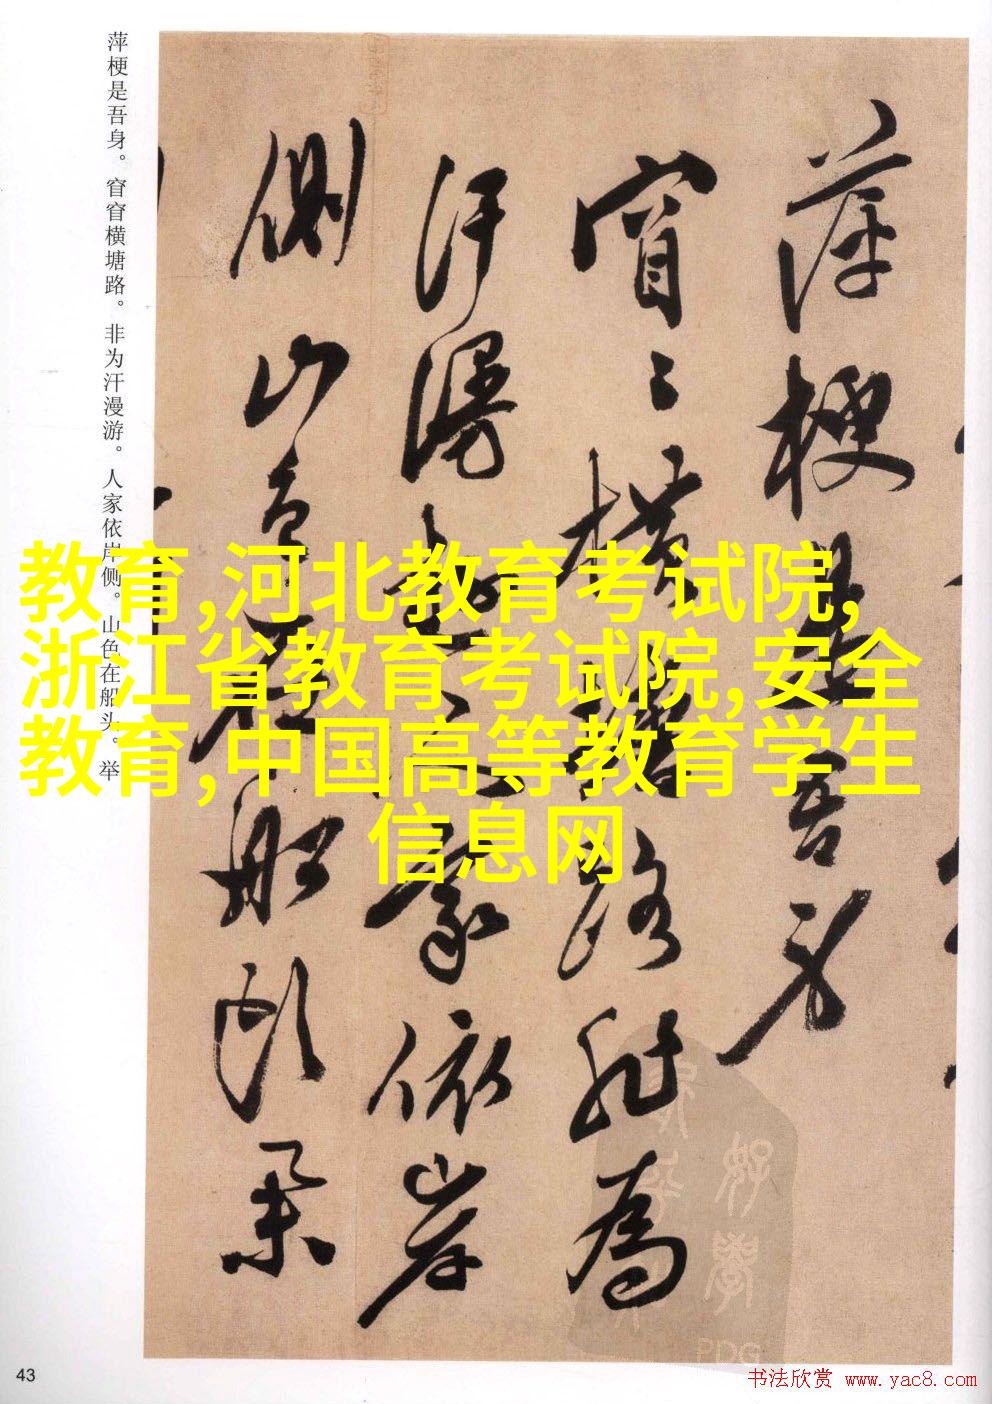 萍梗是吾身。窅窅横塘路。非为汗漫游。人家依岸侧。山色在船头。举
萍梗是吾身
窅〻橫塘路非為
汗漫遊人家依岸
側山色在船頭
教育,河北教育考试院,
浙江省教育考试院,安全
教育,中国高等教育学生
信息网
PDG
43
书法欣赏 www.yac8.com